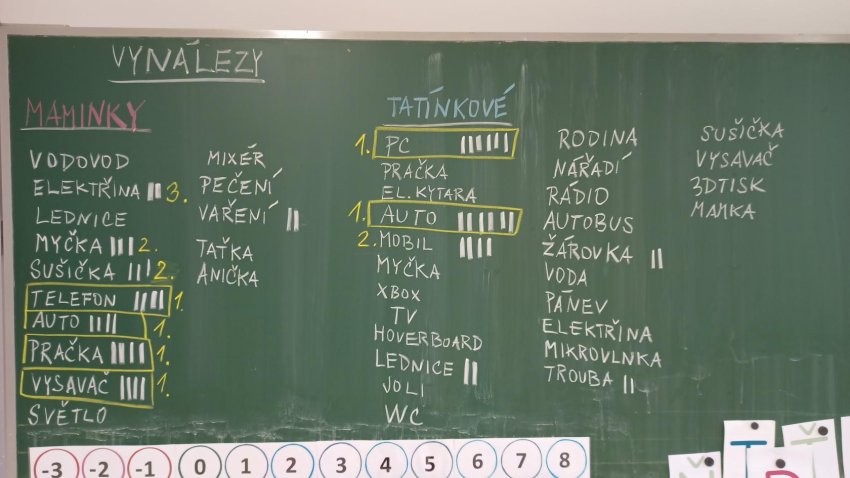 VYNÁLEZY
MAMINKY
VODOVOD
ELEKTŘINA 3.
LEDNICE
MYČKA 2.
SUŠIČKA 2.
TELEFON 1.
AUTO 1.
PRAČKA 1.
VYSAVAČ 1.
SVĚTLO
MIXÉR
PEČENÍ
VAŘENÍ
TAŤKA
ANIČKA
TATÍNKOVÉ
1. PC
PRAČKA
EL.KYTARA
1. AUTO
2. MOBIL
MYČKA
XBOX
TV
HOVERBOARD
LEDNICE
JOLI
WC
RODINA
NÁŘADÍ
RÁDIO
AUTOBUS
ŽÁROVKA
VODA
PÁNEV
ELEKTŘINA
MIKROVLNKA
TROUBA
SUŠIČKA
VYSAVAČ
3DTISK
MAMKA
-3 -2 -1 0 1 2 3 4 5 6 7 8